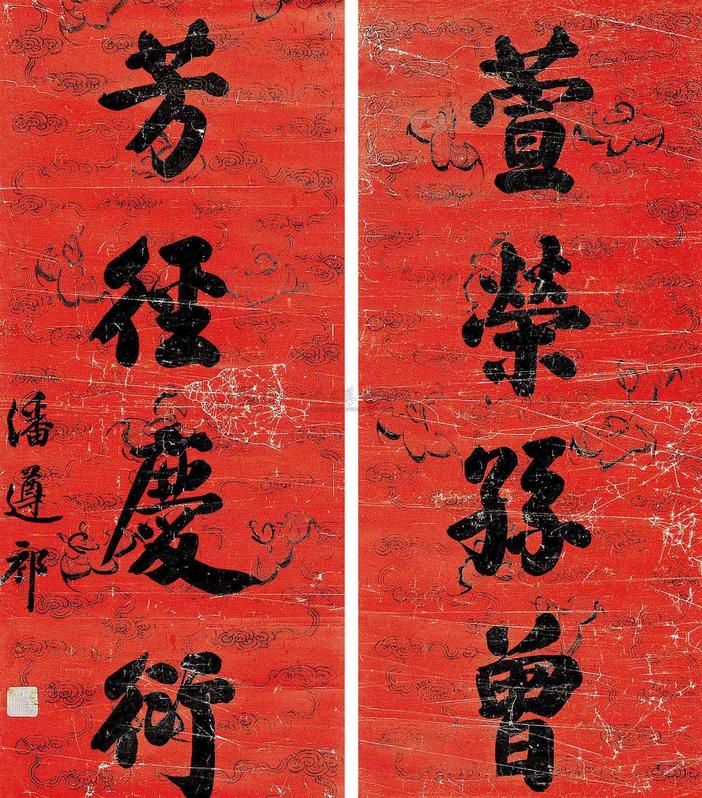 萱榮孫曾
芳徑慶衍
潘遵祁